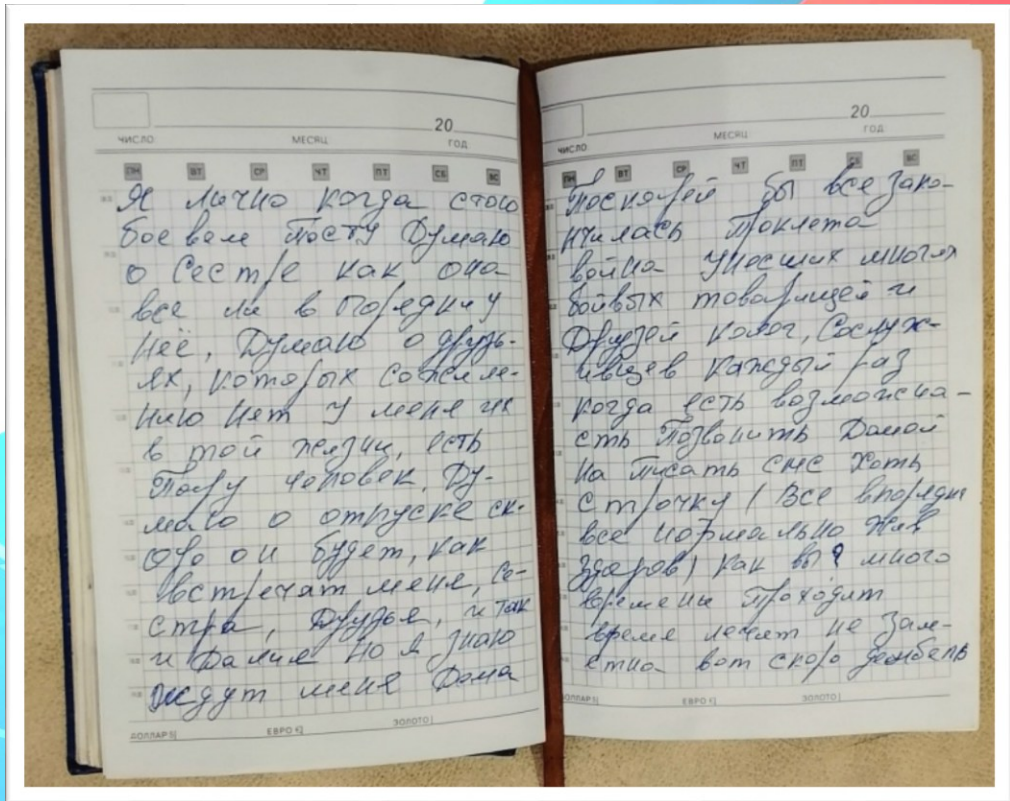 20
ЧИСЛО МЕСЯЦ ГОД
ПН ВТ СР ЧТ ПТ СБ ВС
Я лично когда стою
боевом посту Думаю
о Сестре как она
все ли в порядки у
неё, Думаю о друзь-
ях, которых сожеле-
нию нет у меня их
в той жизни, есть
Пару человек. Ду-
маю о отпуске ск-
оро он будет, как
встречат меня, Се-
стра, Друзья, и так
и Далие но я знаю
ждут меня Дома
ДОЛЛАР $| ЕВРО €| ЗОЛОТО |
20
ЧИСЛО МЕСЯЦ ГОД
ПН ВТ СР ЧТ ПТ СБ ВС
Поскорей бы все зако-
нчилась Проклета
война унесших многих
бойвых товарищей и
Друзей колог, Сослуж-
ивцев каждый раз
когда есть возможна-
сть Позвонить Домой
на писать смс хоть
строчку / Все впорядке
все нормально Жив
здоров / как вы? много
времены Проходит
время лечят не Зам-
етна вот скоро дембель
ДОЛЛАР $| ЕВРО €| ЗОЛОТО |